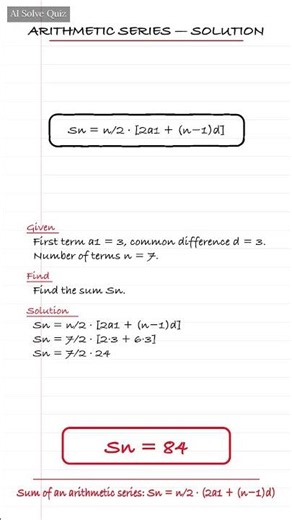 AI Solve Quiz
ARITHMETIC SERIES — SOLUTION
Sn = n/2 · [2a1 + (n−1)d]
Given
First term a1 = 3, common difference d = 3.
Number of terms n = 7.
Find
Find the sum Sn.
Solution
Sn = n/2 · [2a1 + (n−1)d]
Sn = 7/2 · [2·3 + 6·3]
Sn = 7/2 · 24
Sn = 84
Sum of an arithmetic series: Sn = n/2 · (2a1 + (n−1)d)